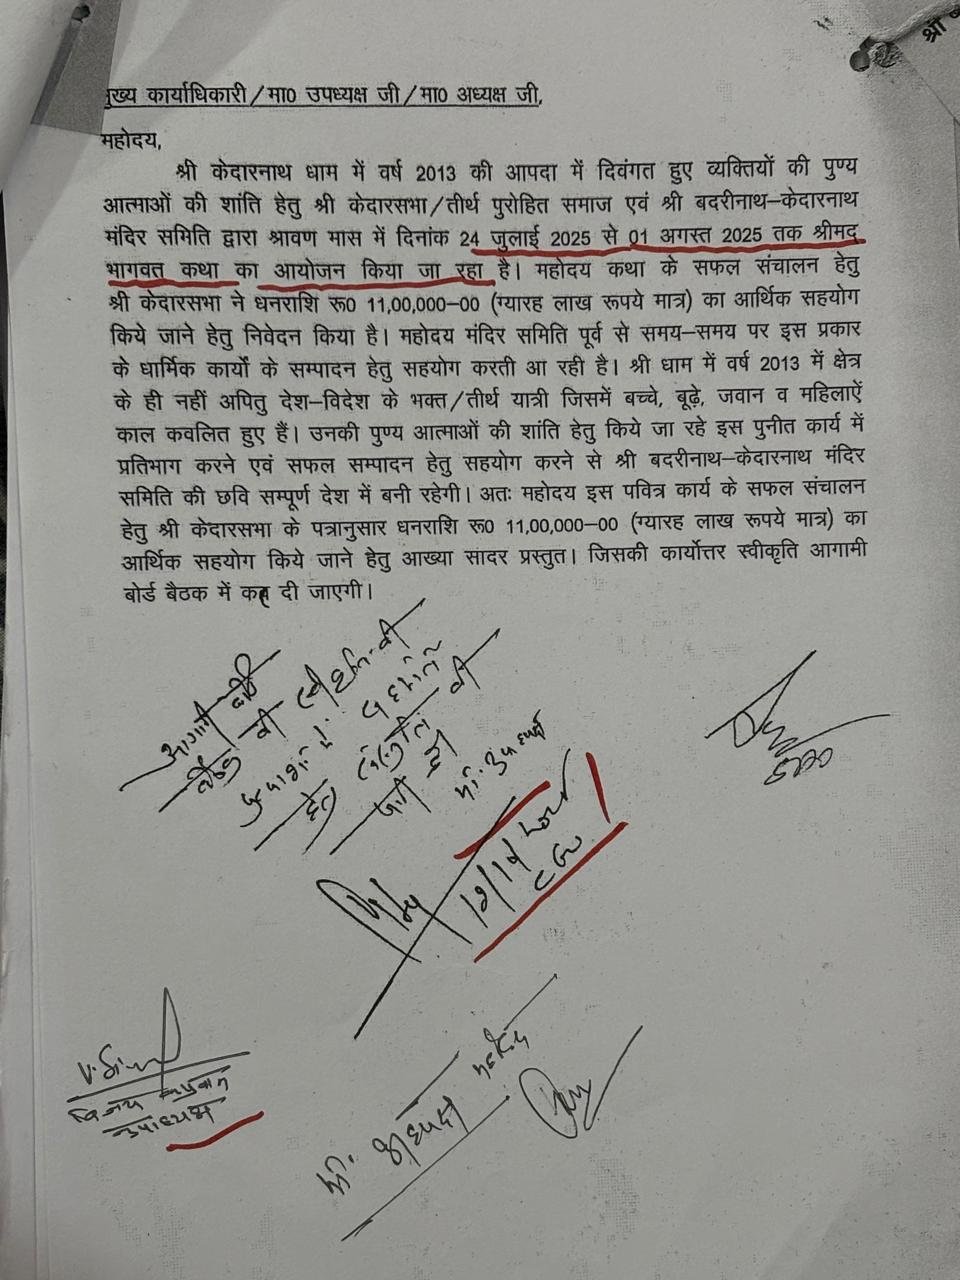 मुख्य कार्याधिकारी/मा0 उपध्यक्ष जी/मा0 अध्यक्ष जी,
महोदय,
श्री केदारनाथ धाम में वर्ष 2013 की आपदा में दिवंगत हुए व्यक्तियों की पुण्य
आत्माओं की शांति हेतु श्री केदारसभा/तीर्थ पुरोहित समाज एवं श्री बदरीनाथ–केदारनाथ
मंदिर समिति द्वारा श्रावण मास में दिनांक 24 जुलाई 2025 से 01 अगस्त 2025 तक श्रीमद्
भागवत कथा का आयोजन किया जा रहा है। महोदय कथा के सफल संचालन हेतु
श्री केदारसभा ने धनराशि रू0 11,00,000–00 (ग्यारह लाख रूपये मात्र) का आर्थिक सहयोग
किये जाने हेतु निवेदन किया है। महोदय मंदिर समिति पूर्व से समय–समय पर इस प्रकार
के धार्मिक कार्यों के सम्पादन हेतु सहयोग करती आ रही है। श्री धाम में वर्ष 2013 में क्षेत्र
के ही नहीं अपितु देश–विदेश के भक्त/तीर्थ यात्री जिसमें बच्चे, बूढ़े, जवान व महिलाऐं
काल कवलित हुए हैं। उनकी पुण्य आत्माओं की शांति हेतु किये जा रहे इस पुनीत कार्य में
प्रतिभाग करने एवं सफल सम्पादन हेतु सहयोग करने से श्री बदरीनाथ–केदारनाथ मंदिर
समिति की छवि सम्पूर्ण देश में बनी रहेगी। अतः महोदय इस पवित्र कार्य के सफल संचालन
हेतु श्री केदारसभा के पत्रानुसार धनराशि रू0 11,00,000–00 (ग्यारह लाख रूपये मात्र) का
आर्थिक सहयोग किये जाने हेतु आख्या सादर प्रस्तुत। जिसकी कार्योत्तर स्वीकृति आगामी
बोर्ड बैठक में दी जाएगी।
आगामी बोर्ड
बैठक की स्वीकृति की
हेतु संस्तुति की
जाती है।
मा. उपाध्यक्ष
CEO
विजय
उपाध्यक्ष
मा. अध्यक्ष महोदय
श्री